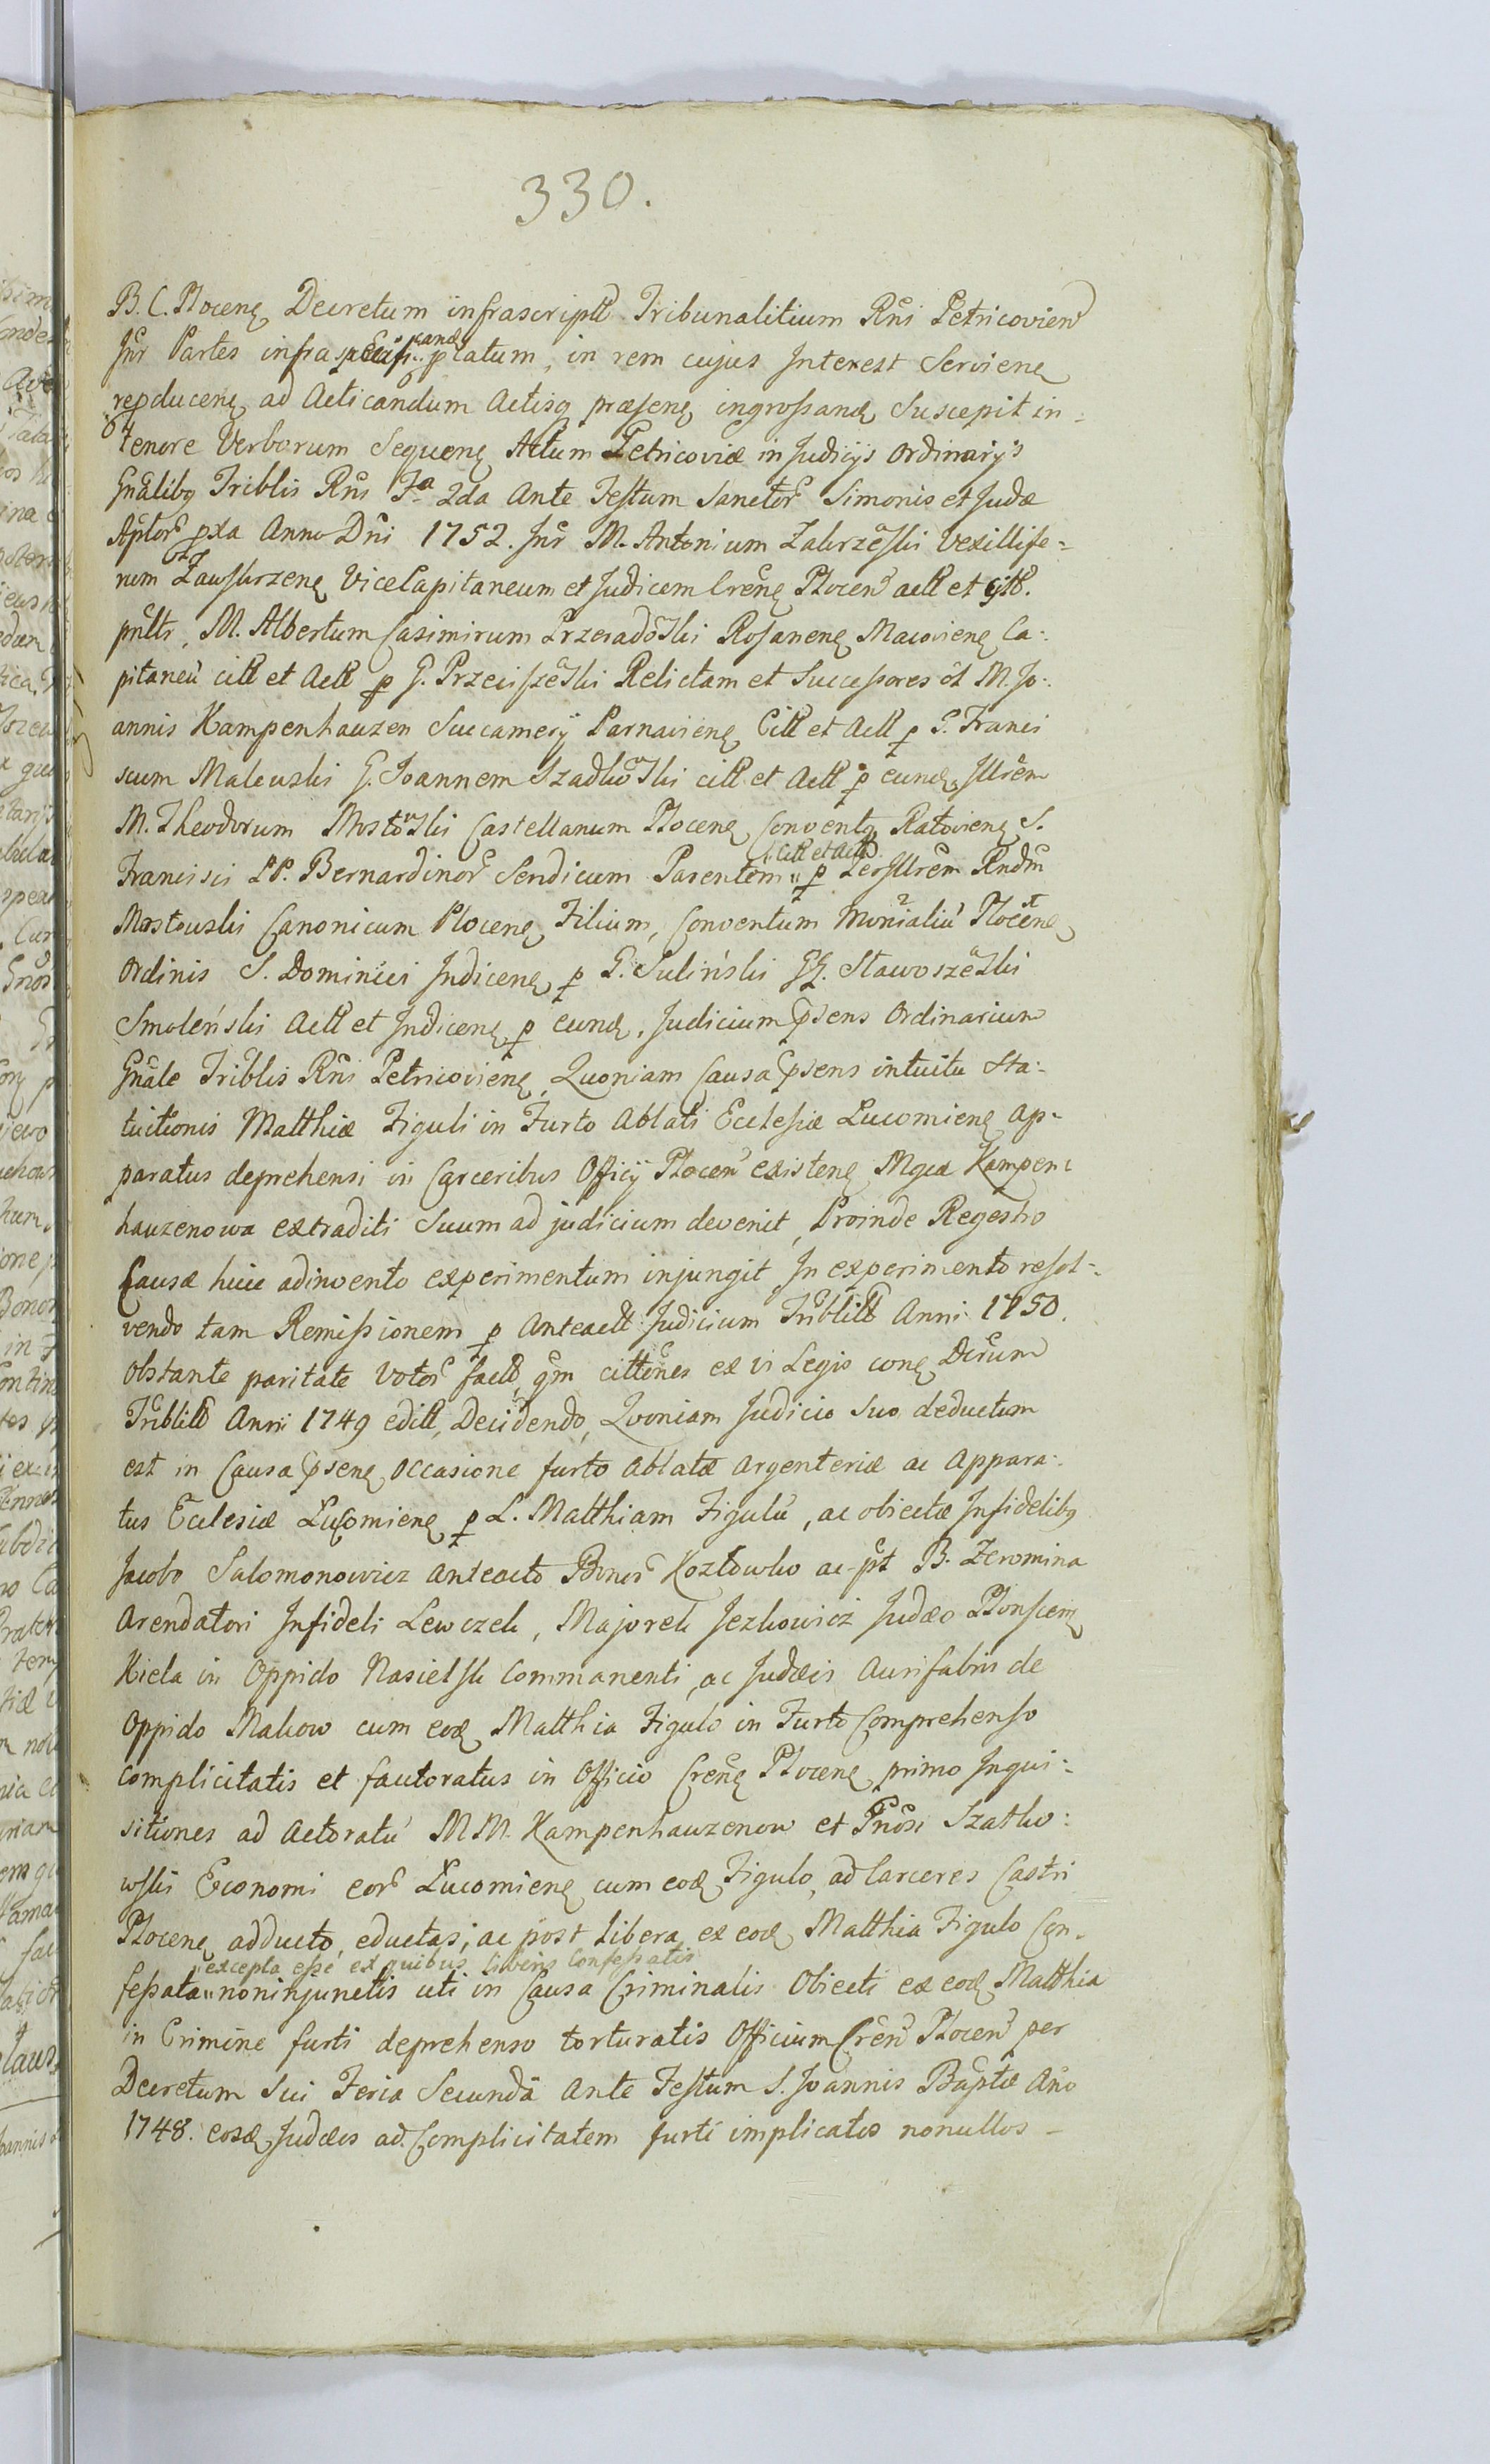 330.
B. C. Plocen Decretum infrascript Tribunalitium Rni Petricovien
Inr Partes infraspecificand platum, in rem cujus Interest Servien
reproducen ad Acticandum Actisq præsen ingrossand Suscepit in-
tenore Verborum Sequen Actum Petricoviæ in Judicijs Ordinarijs
Gnalibq Triblis Rni Fa 2da Ante Festum Sanctor Simonis et Judæ
Aptor pxa Anno Dni 1752. Inr M. Antonium Zakrzeski Vexillife=
rum Zawskrzen ViceCapitaneum et Judicem Cren Plocen act et citt.
pnltr, M. Albertum Casimirum Przeradoski Rosanen Macovien Ca:
pitaneu citt et Actt p G. Przeciszeski Relictam et Successores ol M. Jo:
annis Kampenhauzen Succamerij Parnavien Citt et Actt p G. Franci
scum Malewski G. Joannem Szadkoski citt et Actt p eund, Illrem
M. Theodorum Mostoski Castellanum Plocen Conventq Ratovien S.
Francisci PP. Bernardinor Sendicum Parentem " Citt et Actt p PerIllrem Rndm
Mostowski Canonicum Plocen Filium, Conventum Monialiu Plocen
Ordinis S. Dominici Indicen p G. Suliński GG. Stawoszeski
Smoleński Actt et Indicen p eund, Judicium psens Ordinarium
Gnale Triblis Rni Petricovien, Quoniam Causa psens intuitu Sta:
tuitionis Matthiæ Figuli in Furto Ablati Ecclesiæ Lucomien Ap-
paratus deprehensi in Carceribus Officij Plocen existen Mgca Kampen:
hauzenowa extraditi Suum ad judicium devenit, Proinde Regestro
Causæ huic adinvento experimentum injungit, In experimento resol-
vendo tam Remissionem p Anteactt Judicium Triblitt Anni 1750.
Obstante paritate Votor factt, qm cittones ex vi Legis con Dcrum
Triblitt Anni 1749 editt, Decidendo, Qvoniam Judicio Suo deductum
est in Causa psen occasione furto Ablatæ Argenteriæ ac Appara:
tus Ecclesiæ Lucomien p L. Matthiam Figulu, ac obiectæ Infidelibq
Jacobo Salomonowicz anteacto Bonor Kozłowko ac pt B. Zeromina
Arendatori Infideli Lewczek, Majorek Jezkowicz Judæo Plonscen
Kiela in Oppido Nasielsk Commanenti, ac Judæis Aurifabris de
Oppido Makow cum eod Matthia Figulo in Furto Comprehenso
complicitatis et fautoratus in Officio Cren Plocen primo Inqui:
sitiones ad Actoratu MM. Kampenhauzenow et Gnosi Szatko:
wski Economi eor Lucomien cum eod Figulo, ad Carceres Castri
Plocen adducto, eductas, ac post libera ex eod Matthia Figulo Con-
excepta esse ex quibus liberis Confessatis
fessata " noninjunctis uti in Causa Criminalis Obiecti ex eod Matthia
in Crimine furti deprehenso torturatis Officium Cren Plocen per
Decretum Sui Feria Secunda Ante Festum S. Joannis Baptæ Ano
1748. eosd Judæos ad Complicitatem furti implicatos nonullos -